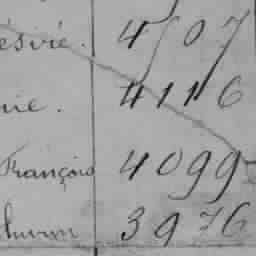 ésiré. 4507
nie. 4116
François 4099
3976